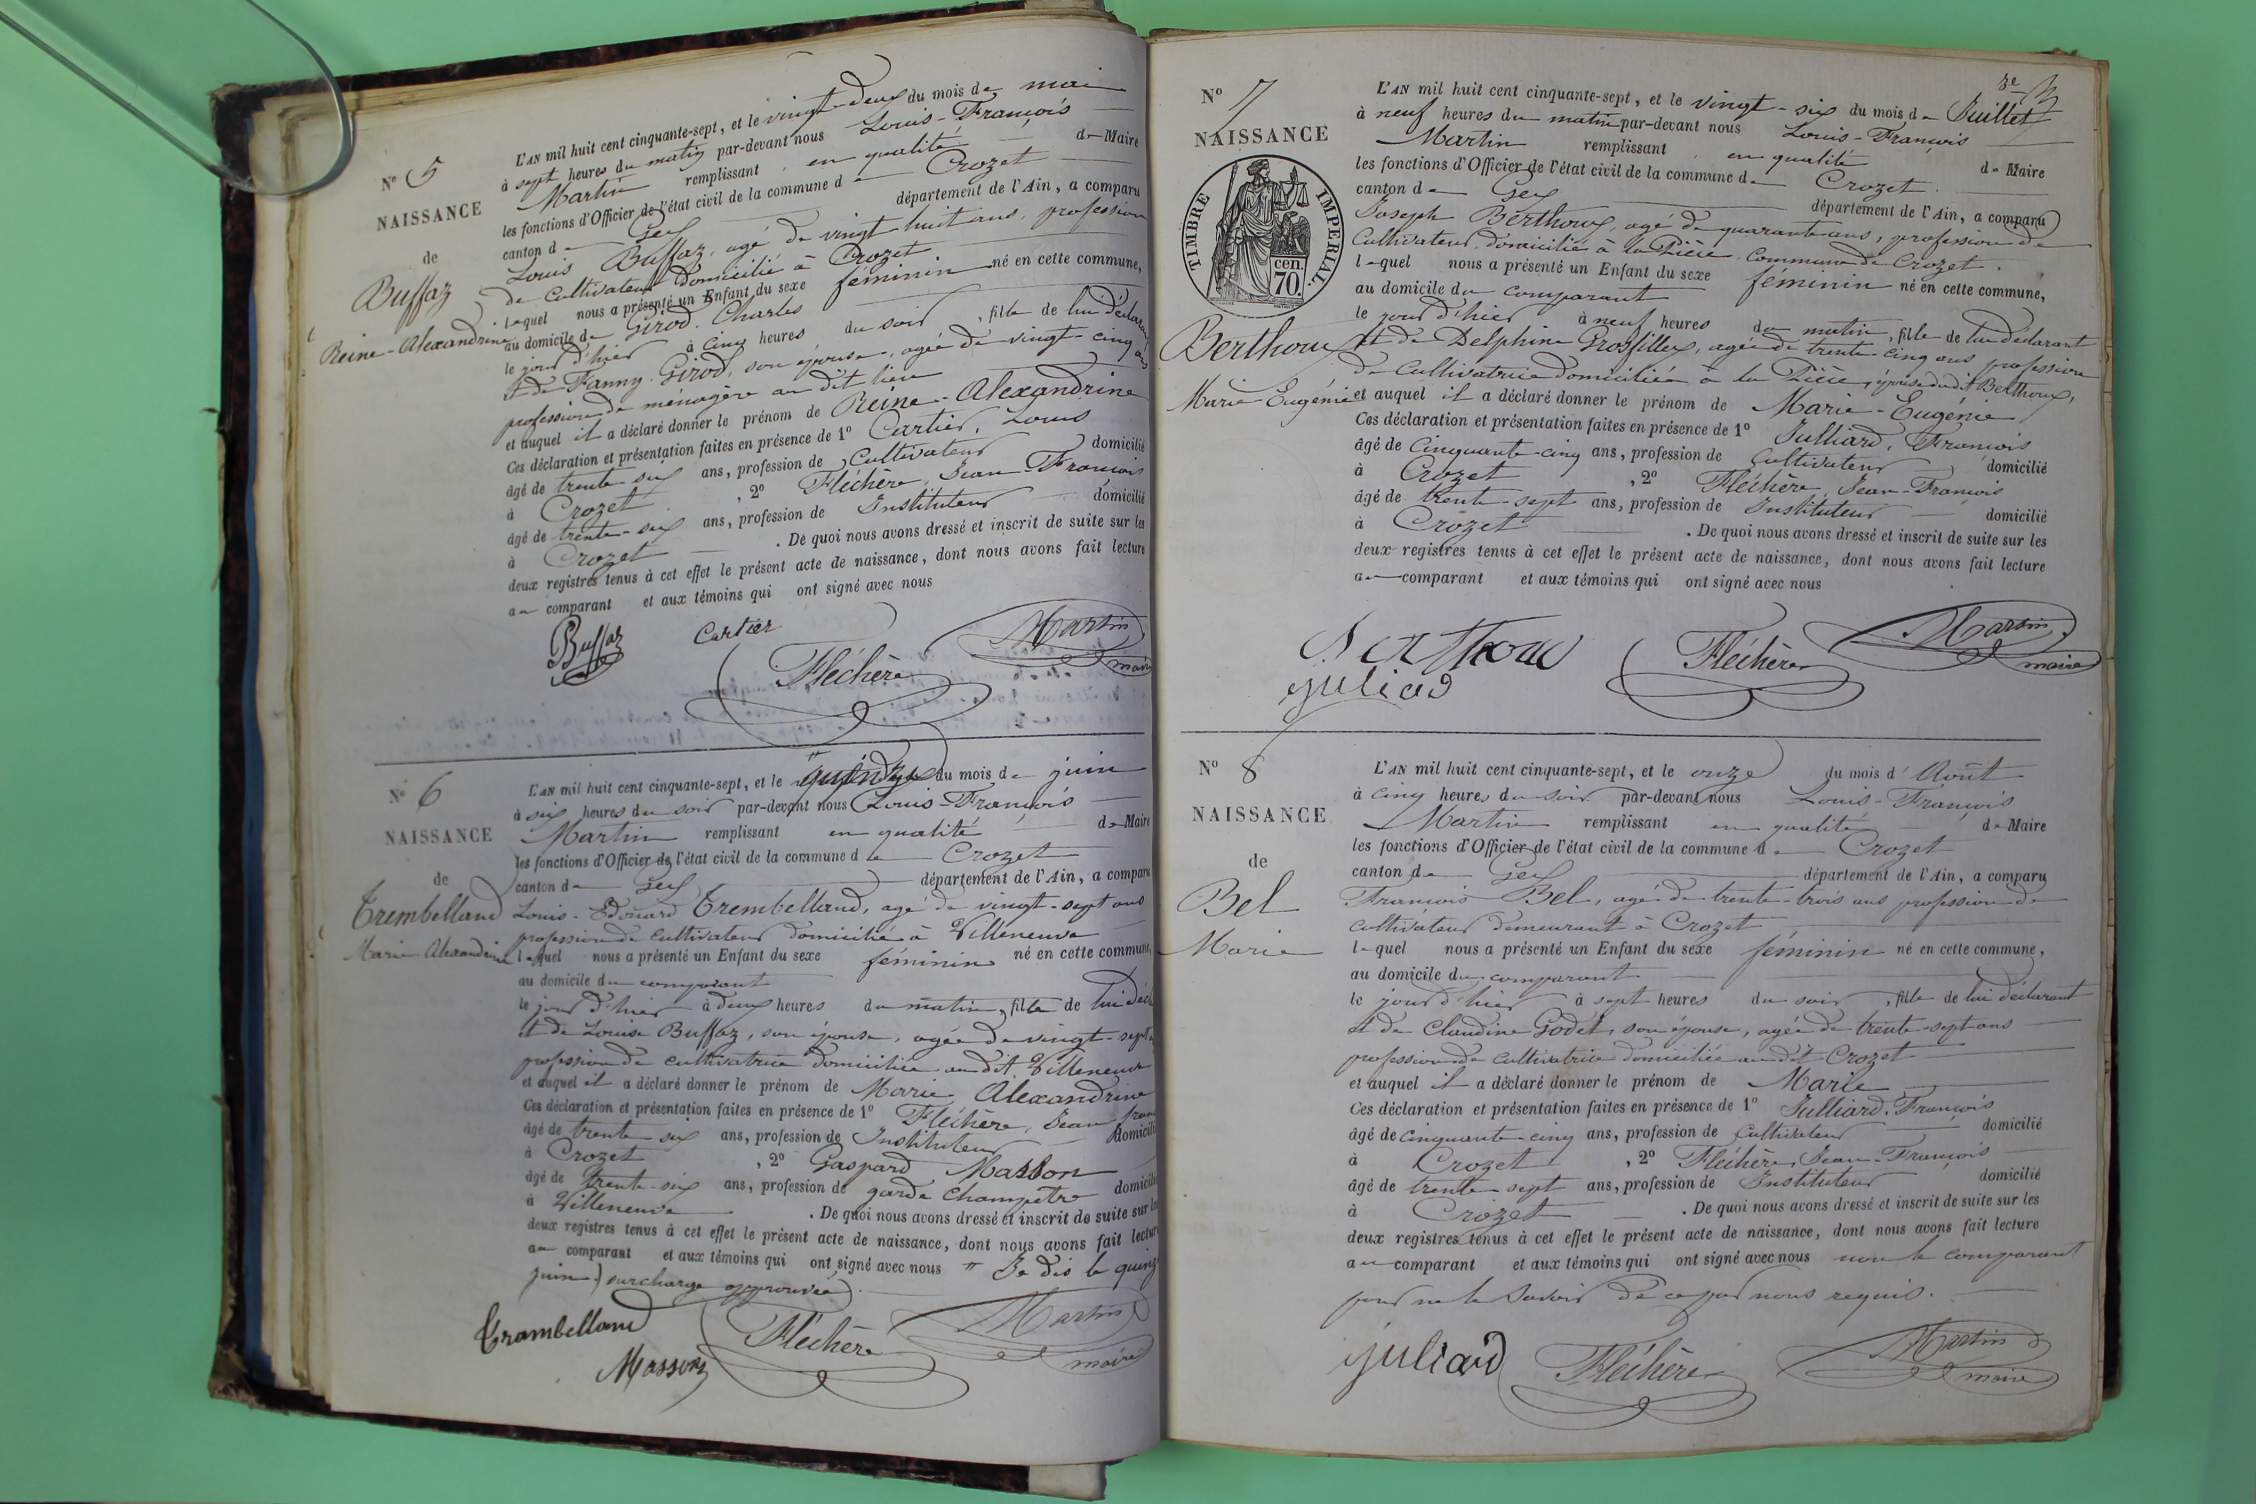 N° 5
NAISSANCE
de
Buffaz
Reine-Alexandrine
L'AN mil huit cent cinquante-sept, et le vingt-deux du mois de mai
à sept heures du matin par-devant nous Louis-François
Martin remplissant en qualité de Maire
les fonctions d'Officier de l'état civil de la commune de Crozet
canton de Gex département de l'Ain, a comparu
Louis Buffaz, agé de vingt huit ans, profession
de Cultivateur domicilié à Crozet
lequel nous a présenté un Enfant du sexe féminin né en cette commune,
au domicile de Girod Charles
le jour d'hier à cinq heures du soir, fille de lui déclarant
et de Fanny Girod, son épouse, agée de vingt-cinq ans
profession de ménagère au dit lieu
et auquel il a déclaré donner le prénom de Reine-Alexandrine
Ces déclaration et présentation faites en présence de 1° Cartier, Louis
âgé de trente six ans, profession de Cultivateur domicilié
à Crozet, 2° Fléchère, Jean-François
âgé de trente-six ans, profession de Instituteur domicilié
à Crozet. De quoi nous avons dressé et inscrit de suite sur les
deux registres tenus à cet effet le présent acte de naissance, dont nous avons fait lecture
au comparant et aux témoins qui ont signé avec nous
Buffaz Cartier Martin
Fléchère maire
N° 6
NAISSANCE
de
Trembelland
Marie Alexandrine
L'AN mil huit cent cinquante-sept, et le quinze du mois de juin
à six heures du soir par-devant nous Louis-François
Martin remplissant en qualité de Maire
les fonctions d'Officier de l'état civil de la commune de Crozet
canton de Gex département de l'Ain, a comparu
Louis-Edouard Trembelland, agé de vingt-sept ans
profession de cultivateur domicilié à Villeneuve
lequel nous a présenté un Enfant du sexe féminin né en cette commune,
au domicile du comparant
le jour d'hier à deux heures du matin, fille de lui décl
et de Louise Buffaz, son épouse, agée de vingt-sept
profession de cultivatrice domiciliée au dit Villeneuve
et auquel il a déclaré donner le prénom de Marie Alexandrine
Ces déclaration et présentation faites en présence de 1° Fléchère, Jean fran
âgé de trente six ans, profession de Instituteur domicilié
à Crozet, 2° Gaspard Masson
âgé de trente-six ans, profession de garde champetre domicilié
à Villeneuve. De quoi nous avons dressé et inscrit de suite sur les
deux registres tenus à cet effet le présent acte de naissance, dont nous avons fait lecture
au comparant et aux témoins qui ont signé avec nous " Je dis le quinze
juin) surcharge approuvée.
Trambelland Fléchère Martin
Masson maire
3e
N° 7
NAISSANCE
TIMBRE IMPERIAL.
70. cen.
Berthoux
Marie Eugénie
L'AN mil huit cent cinquante-sept, et le vingt-six du mois de Juillet
à neuf heures du matin par-devant nous Louis-François
Martin remplissant en qualité de Maire
les fonctions d'Officier de l'état civil de la commune de Crozet.
canton de Gex département de l'Ain, a comparu
Joseph Berthoux, agé de quarante ans, profession de
Cultivateur domicilié à la Pièce, Commune de Crozet.
lequel nous a présenté un Enfant du sexe féminin né en cette commune,
au domicile du comparant
le jour d'hier à neuf heures du matin, fille de lui déclarant
et de Delphine Grosfillex, agée de trente-cinq ans profession
de Cultivatrice domiciliée à la Pièce, épouse du dit Berthoux,
et auquel il a déclaré donner le prénom de Marie-Eugénie
Ces déclaration et présentation faites en présence de 1° Julliard, François
âgé de Cinquante-cinq ans, profession de Cultivateur domicilié
à Crozet, 2° Fléchère, Jean-François
âgé de trente-sept ans, profession de Instituteur domicilié
à Crozet. De quoi nous avons dressé et inscrit de suite sur les
deux registres tenus à cet effet le présent acte de naissance, dont nous avons fait lecture
au comparant et aux témoins qui ont signé avec nous
Berthoux Fléchère Martin
juliad maire
N° 8
NAISSANCE
de
Bel
Marie
L'AN mil huit cent cinquante-sept, et le onze du mois d'Août
à cinq heures du soir par-devant nous Louis-François
Martin remplissant en qualité de Maire
les fonctions d'Officier de l'état civil de la commune de Crozet
canton de Gex département de l'Ain, a comparu
François Bel, agé de trente-trois ans profession de
cultivateur demeurant à Crozet
lequel nous a présenté un Enfant du sexe féminin né en cette commune,
au domicile du comparant
le jour d'hier à sept heures du soir, fille de lui déclarant
et de Claudine Godet, son épouse, agée de trente-sept ans
profession de cultivatrice domiciliée au dit Crozet
et auquel il a déclaré donner le prénom de Marie
Ces déclaration et présentation faites en présence de 1° Julliard, François
âgé de cinquante-cinq ans, profession de Cultivateur domicilié
à Crozet, 2° Fléchère, Jean-François
âgé de trente-sept ans, profession de Instituteur domicilié
à Crozet. De quoi nous avons dressé et inscrit de suite sur les
deux registres tenus à cet effet le présent acte de naissance, dont nous avons fait lecture
au comparant et aux témoins qui ont signé avec nous non le comparant
pour ne le savoir de ce par nous requis.
juliard Fléchère Martin
maire